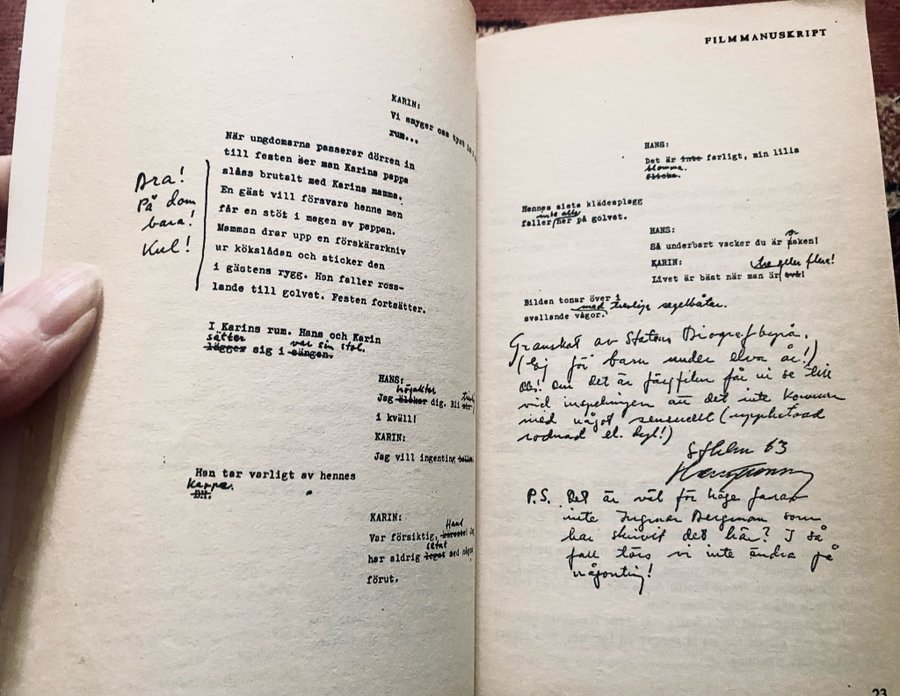 KARIN:
Vi smyger oss tyst
rum...
När ungdomarna passerar dörren in
till festen ser man Karins pappa
slåss brutalt med Karins mamma.
En gäst vill försvara henne men
får en stöt i magen av pappan.
Mamman drar upp en förskärarkniv
ur kökslådan och sticker den
i gästens rygg. Han faller ross-
lande till golvet. Festen fortsätter.
Bra!
På dom
bara!
Kul!
I Karins rum. Hans och Karin
sätter var sin stol.
lägger sig i sängen.
HANS:
högaktar
Jag älskar dig. Bli
i kväll!
KARIN:
Jag vill ingenting
Han tar varligt av hennes
Kappa.
BH.
KARIN:
Hans
Var försiktig,
setat
har aldrig legat med någon
förut.
FILMMANUSKRIPT
HANS:
Det är inte farligt, min lilla
blomma.
flicka.
Hennes sista klädesplagg
inte alls
faller ner på golvet.
HANS:
Så underbart vacker du är naken!
KARIN:
tre eller flera!
Livet är bäst när man är två!
Bilden tonar över i
med trevliga segelbåtar.
svallande vågor.
Granskat av Statens Biografbyrå.
(Ej för barn under elva år!)
Obs! Om det är färgfilm får vi se till
vid inspelningen att det inte kommer
med något sensuellt (upphetsad
rodnad el. dyl!)
Sthlm 63
P.S. Det är väl för höge farao
inte Ingmar Bergman som
har skrivit det här? I så
fall törs vi inte ändra på
någonting!
23